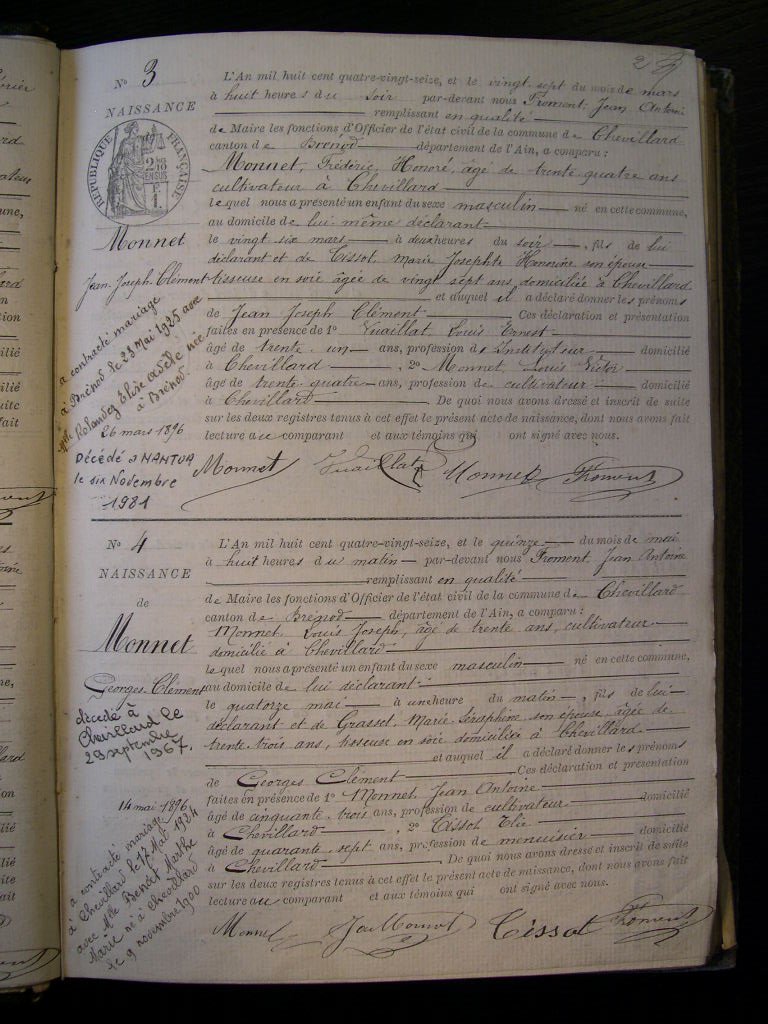 No 3
NAISSANCE
RÉPUBLIQUE FRANÇAISE
Monnet
Jean Joseph Clément
a contracté mariage
à Brénod le 23 Mai 1925 avec
Mlle
à Brénod.
26 mars 1896
Décédé à NANTUA
le six Novembre
1981
L'An mil huit cent quatre-vingt-seize, et le vingt sept du mois de mars
à huit heures du soir par-devant nous Froment, Jean Antoine
remplissant en qualité
de Maire les fonctions d'Officier de l'état civil de la commune de Chevillard
canton de Brénod département de l'Ain, a comparu :
Monnet, Frédéric, Honoré, âgé de trente quatre ans
cultivateur à Chevillard
lequel nous a présenté un enfant du sexe masculin né en cette commune,
au domicile de lui même déclarant
le vingt six mars à deux heures du soir, fils de lui
déclarant et de Tissot, Marie Josephte Honorine son épouse
tisseuse en soie âgée de vingt sept ans domiciliée à Chevillard
et auquel il a déclaré donner les prénoms
de Jean Joseph Clément Ces déclaration et présentation
faites en présence de 1o Vuaillat Louis Ernest
âgé de trente un ans, profession d'Instituteur domicilié
à Chevillard, 2o Monnet Louis Victor
âgé de trente quatre ans, profession de cultivateur domicilié
à Chevillard De quoi nous avons dressé et inscrit de suite
sur les deux registres tenus à cet effet le présent acte de naissance, dont nous avons fait
lecture au comparant et aux témoins qui ont signé avec nous.
Monnet Vuaillat Monnet Froment
No 4
NAISSANCE
de
Monnet
Georges Clément
décédé à
Chevillard le
29 septembre
1967.
14 mai 1896
a contracté mariage
à Chevillard le 17 Mai 1924
avec Mlle Benoit Marthe
Marie né à Chevillard
le 9 novembre 1900
L'An mil huit cent quatre-vingt-seize, et le quinze du mois de mai
à huit heures du matin par-devant nous Froment Jean Antoine
remplissant en qualité
de Maire les fonctions d'Officier de l'état civil de la commune de Chevillard
canton de Brénod département de l'Ain, a comparu :
Monnet Louis Joseph, âgé de trente ans, cultivateur
domicilié à Chevillard
lequel nous a présenté un enfant du sexe masculin né en cette commune,
au domicile de lui déclarant
le quatorze mai à une heure du matin, fils de lui
déclarant et de Grasset Marie Séraphine son épouse âgée de
trente trois ans, tisseuse en soie domiciliée à Chevillard
et auquel il a déclaré donner les prénoms
de Georges Clément Ces déclaration et présentation
faites en présence de 1o Monnet Jean Antoine
âgé de cinquante trois ans, profession de cultivateur domicilié
à Chevillard, 2o Tissot Elie
âgé de quarante sept ans, profession de menuisier domicilié
à Chevillard De quoi nous avons dressé et inscrit de suite
sur les deux registres tenus à cet effet le présent acte de naissance, dont nous avons fait
lecture au comparant et aux témoins qui ont signé avec nous.
Monnet Monnet Tissot Froment